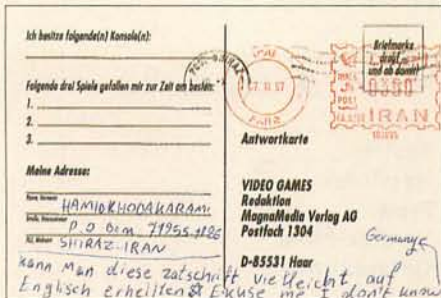 Ich besitze folgende(n) Konsole(n):
Folgende drei Spiele gefallen mir zur Zeit am besten:
1.
2.
3.
Meine Adresse:
HAMIDKHODAKARAMI
P.O Box 71955.1186
SHIRAZ-IRAN
kann man diese zatschrift vielleicht auf
Englisch erheilten Excuse me I don't know
Briefmarke
drauf
und ab damit!
SHIRAZ
FARS
POST
0350
IRAN
Antwortkarte
VIDEO GAMES
Redaktion
MagnaMedia Verlag AG
Postfach 1304
Germany
D-85531 Haar